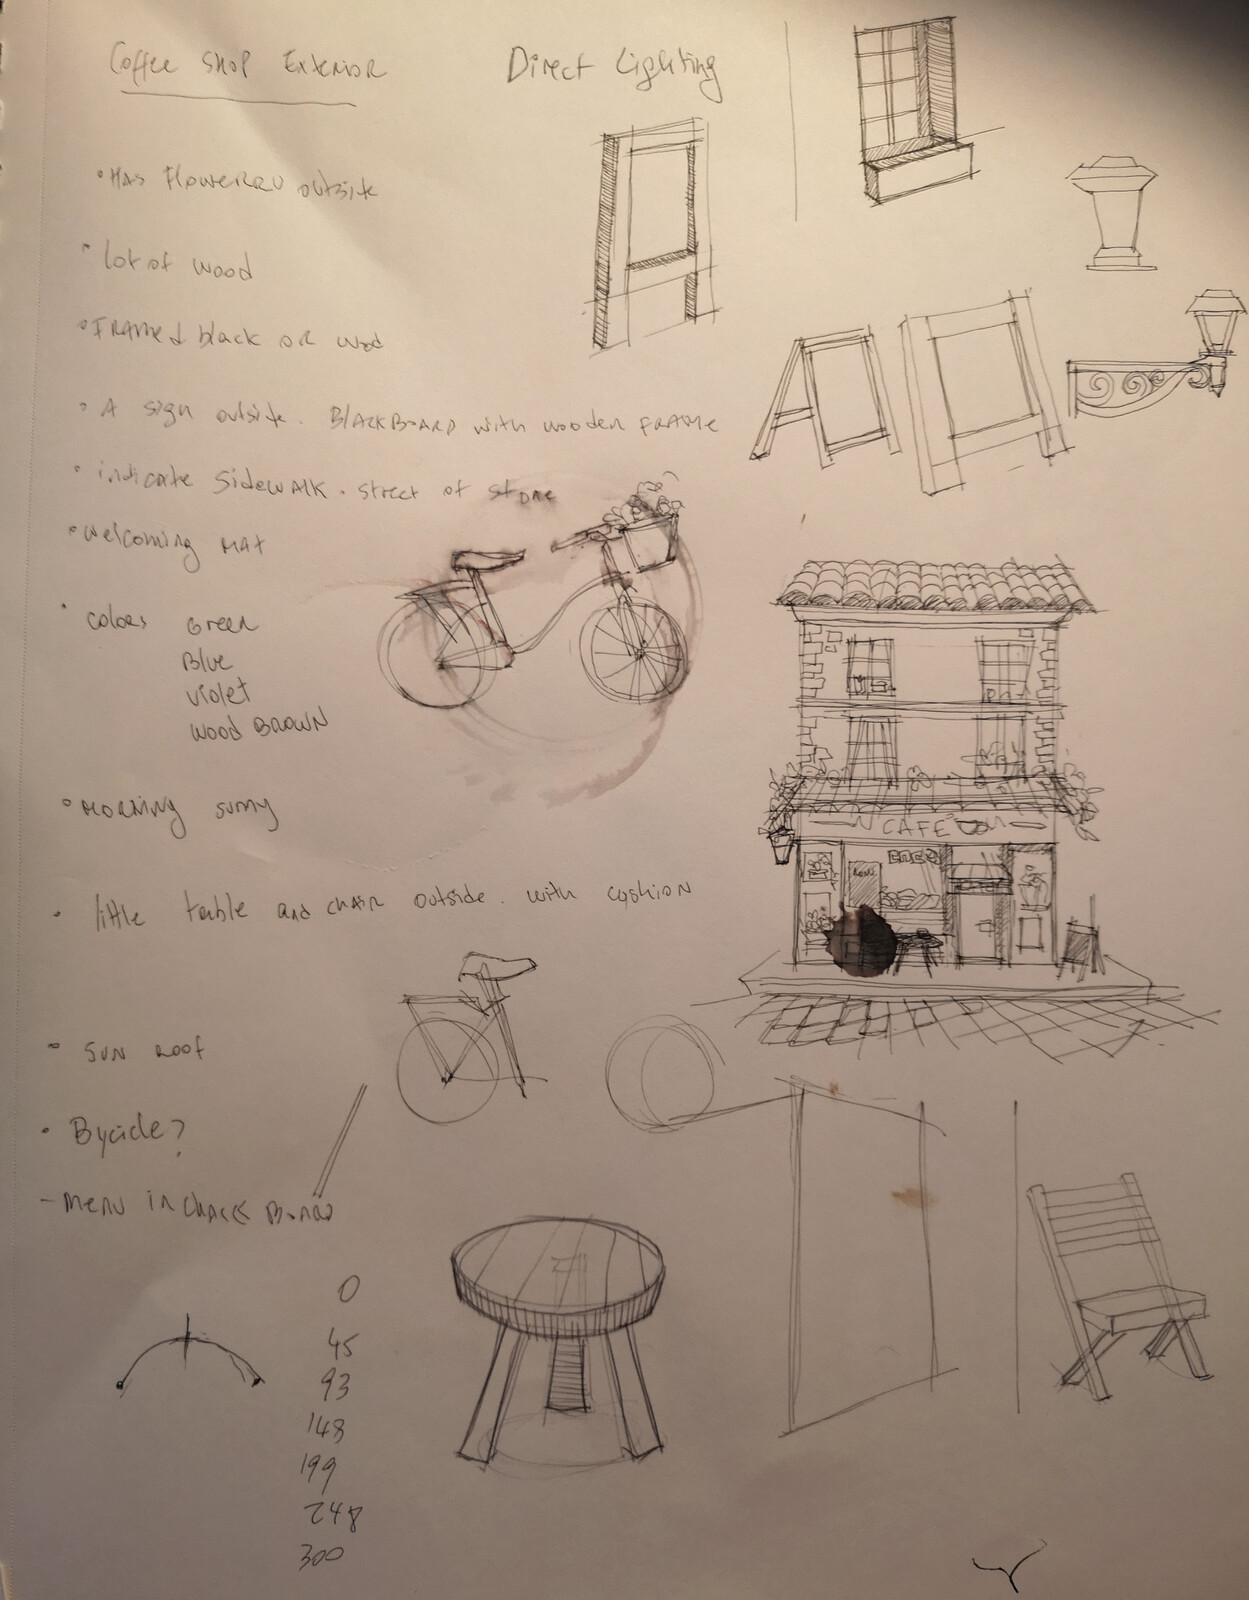 Coffee Shop Exterior
Direct Lighting
• Has outside
• lot of wood
• Framed black or wood
• A sign outside. BlackBoard with wooden frame
• indicate Sidewalk. street of stone
• welcoming mat
• colors Green
Blue
violet
wood Brown
• Morning sunny
• little table and chair outside. with cushion
• Sun roof
• Bycicle?
- Menu in Board
0
45
93
148
199
248
300
CAFE
MENU